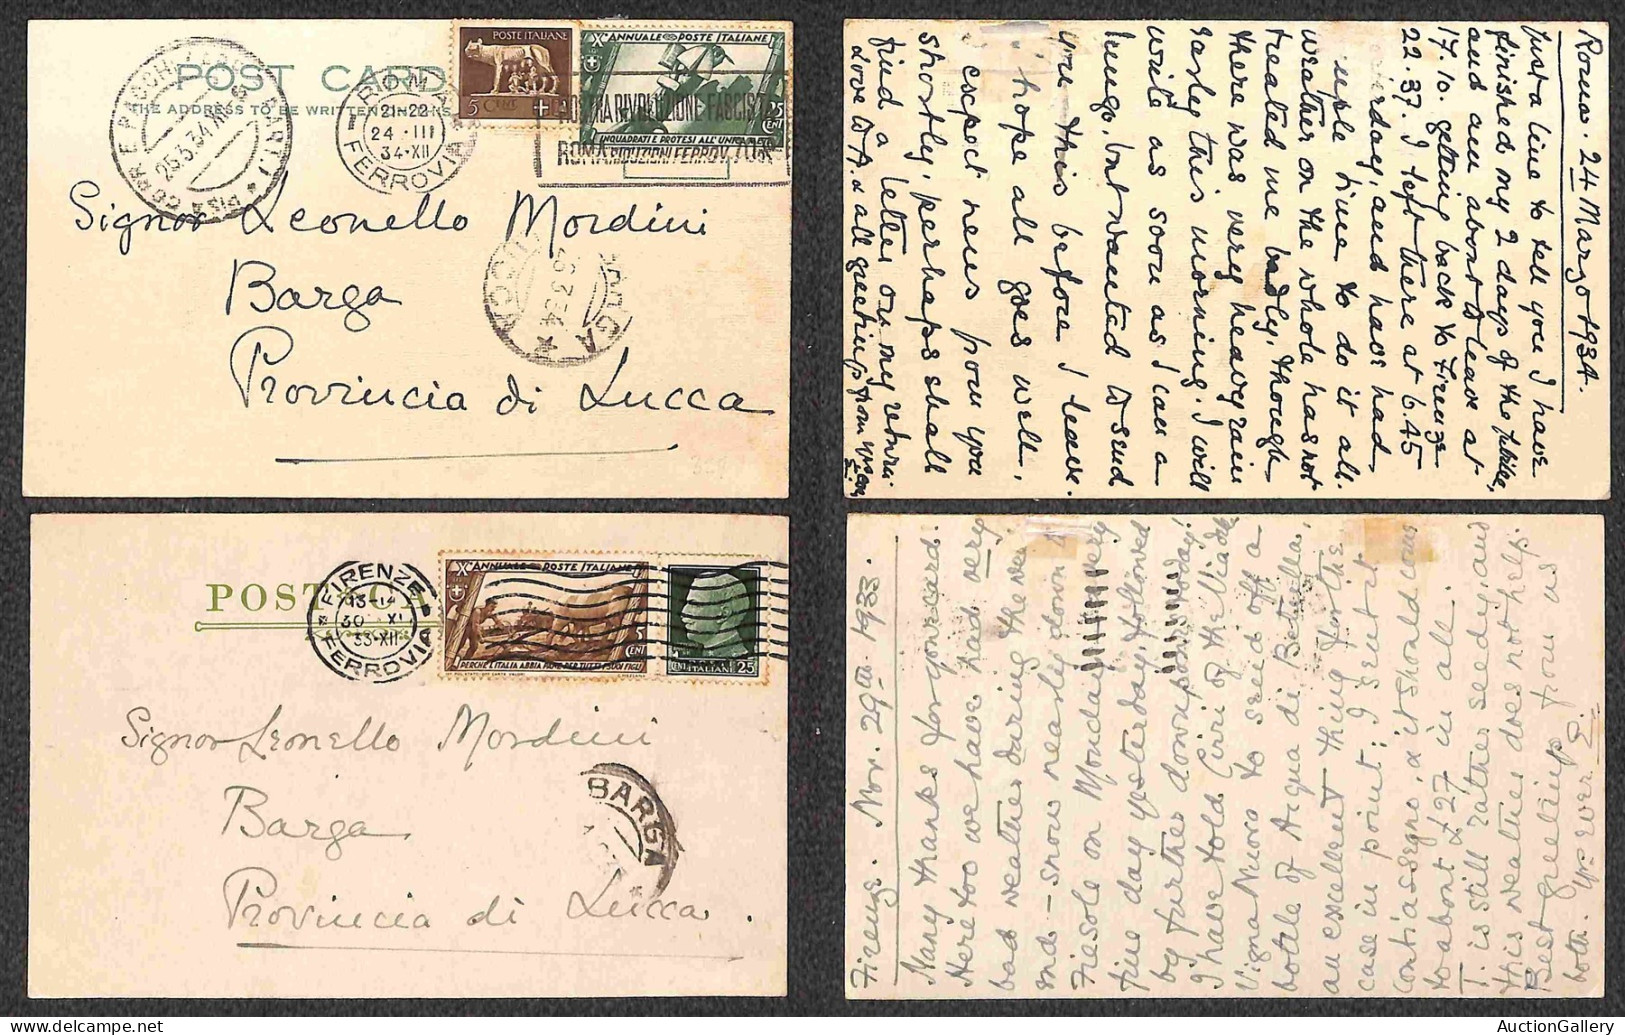 POST CARD
THE ADDRESS TO BE WRITTEN
PISA CORR. E PACCHI
25.3.34
ROMA
21-22
24 III
34·XII
FERROVIA
POSTE ITALIANE
5 CENT
X° ANNUALE POSTE ITALIANE
25 CENT
INQUADRATI E PROTESI ALL'UNICA META
MOSTRA RIVOLUZIONE FASCISTA
ROMA RIDUZIONI FERROV. 70%
Signor Leonello Mordini
Barga
Provincia di Lucca
BARGA
26.3.34
Roma. 24 Marzo 1934.
Just a line to tell you I have
finished my 2 days of the
and am about to leave at
17.10. getting back to Firenze
22.37. I left there at 6.45
yesterday, and have had
ample time to do it all.
Weather on the whole has not
treated me badly, though
there was very heavy rain
early this morning. I will
write as soon as I can a
lungo, but wanted to send
you this before I leave.
I hope all goes well.
I expect news from you
shortly, perhaps shall
find a letter on my return
Love to A. & all greetings from
POST CA
FIRENZE
13-14
30 XI
33·XII
FERROVIA
X° ANNUALE POSTE ITALIANE
5 CENT
PERCHÈ L'ITALIA ABBIA PANE PER TUTTI I SUOI FIGLI
CENT 25
ITALIANE
Signor Leonello Mordini
Barga
Provincia di Lucca.
BARGA
Firenze. Nov. 29th 1933.
Many thanks for your card.
Here too we have had very
bad weather during the week
end - snow nearly down to
Fiesole on Monday, very
fine day yesterday, followed
by further downpours today!
I have told Cirri of the Via della
Vigna Nuova to send off a
botale of Acqua di Betulla,
an excellent thing for the
case in point; I sent it
Contr'assegno, & it should come
to about £27 in all.
T. is still rather seedy, and
this weather does not help.
Best greetings from us
both. Yrs ever E.
AuctionGallery